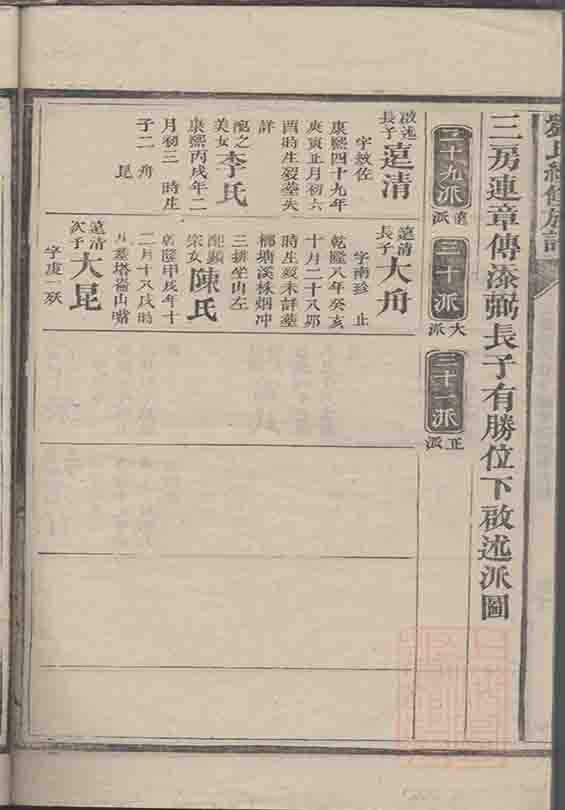 劉氏續修族
三房連章傳添弼長子有勝位下啟述派圖
二十九派
遠派
三十派
大派
三十一派
正派
啟述長子遠清
字紋佐
康熙四十九年
庚寅正月初六
酉時生歿塟失
詳
配之
美女李氏
康熙丙戌年二
月初三 時生
子二 舟
昆
遠清長子大舟
字南珍 止
乾隆八年癸亥
十月二十八卯
時生歿未詳塟
楓塘溪株烟冲
三排坐山左
配顯
宗女陳氏
乾隆甲戌年十
二月十八戌時
塟塔崙山嘴
遠清次子大昆
字虞一歿